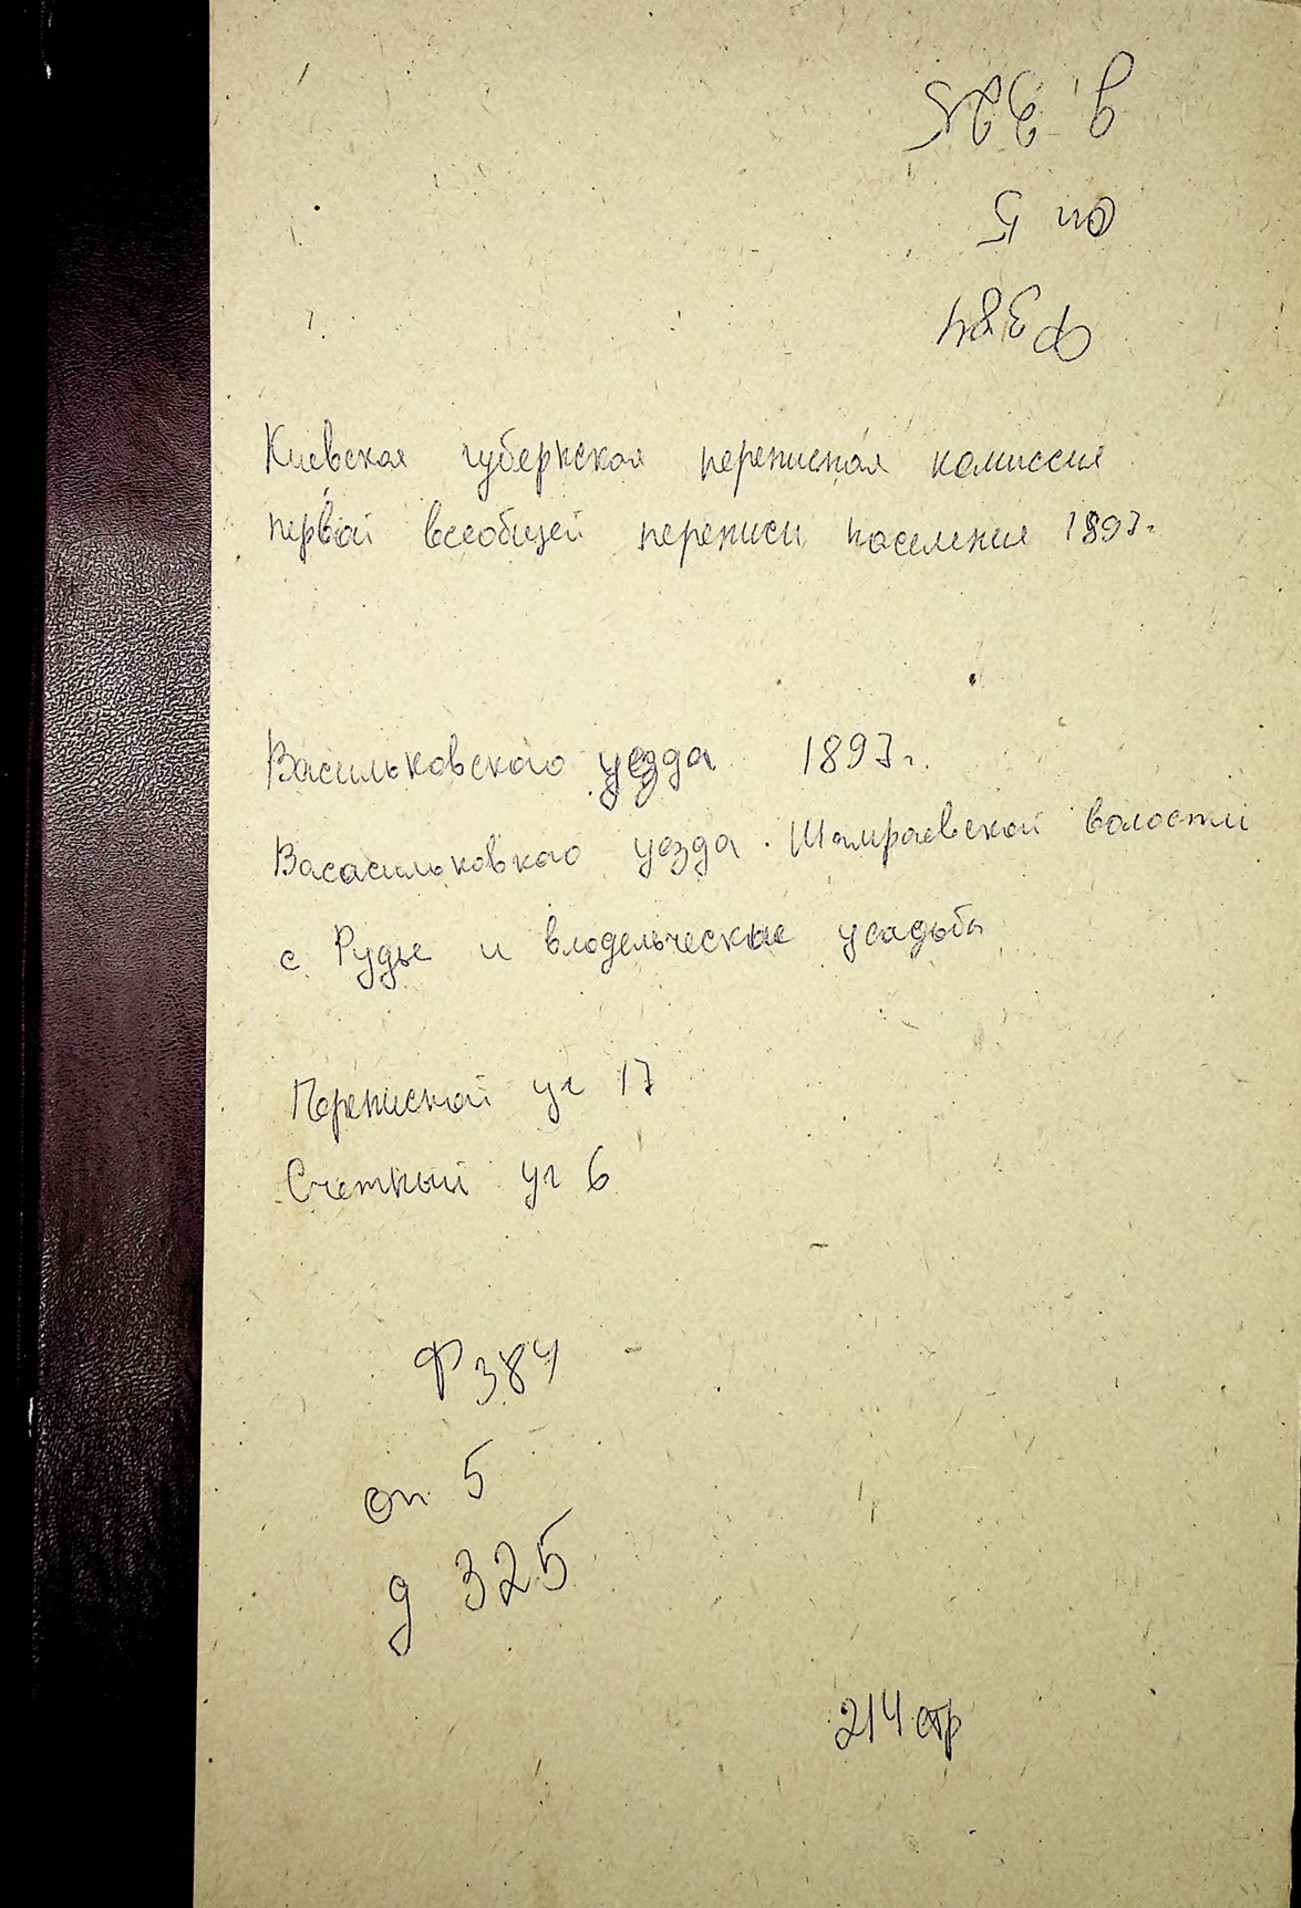 Ф 384
оп 5
д. 325
Киевская губернская переписная комиссия
первой всеобщей переписи населения 1897г.
Васильковского уезда 1897г.
Васасильковкого уезда. Шамраевской волости
с. Рудье и владельческие усадьбы
Переписной уч 17
Счетный уч 6
Ф 384
оп 5
д 325
214 стр